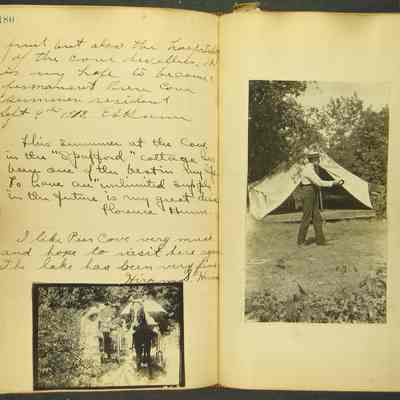 180
fruit, but also the hospitality
of the cove dwellers. It
is my hope to become a
permanent Pier Cove
summer resident
Sept 9th 1912. Ed Hume
This summer at the Cove
in the "Spufford" cottage has
been one of the best in my life.
To have an "unlimited supply"
in the future is my great desire
Florence Hume.
I like Pier Cove very much
and hope to visit here again
The lake has been very fine
Hume